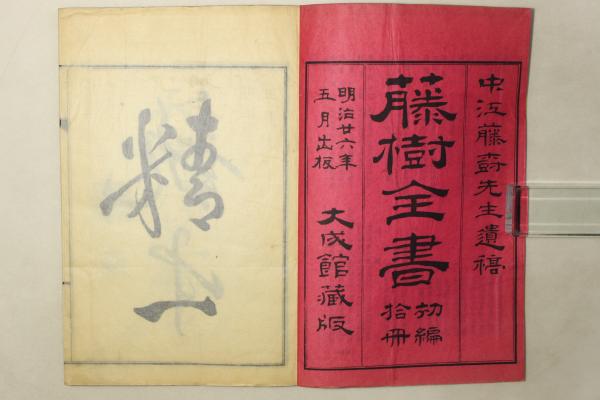 中江藤樹先生遺稿
藤樹全書
初編
拾冊
明治廿六年
五月出板
大成館藏版
精一